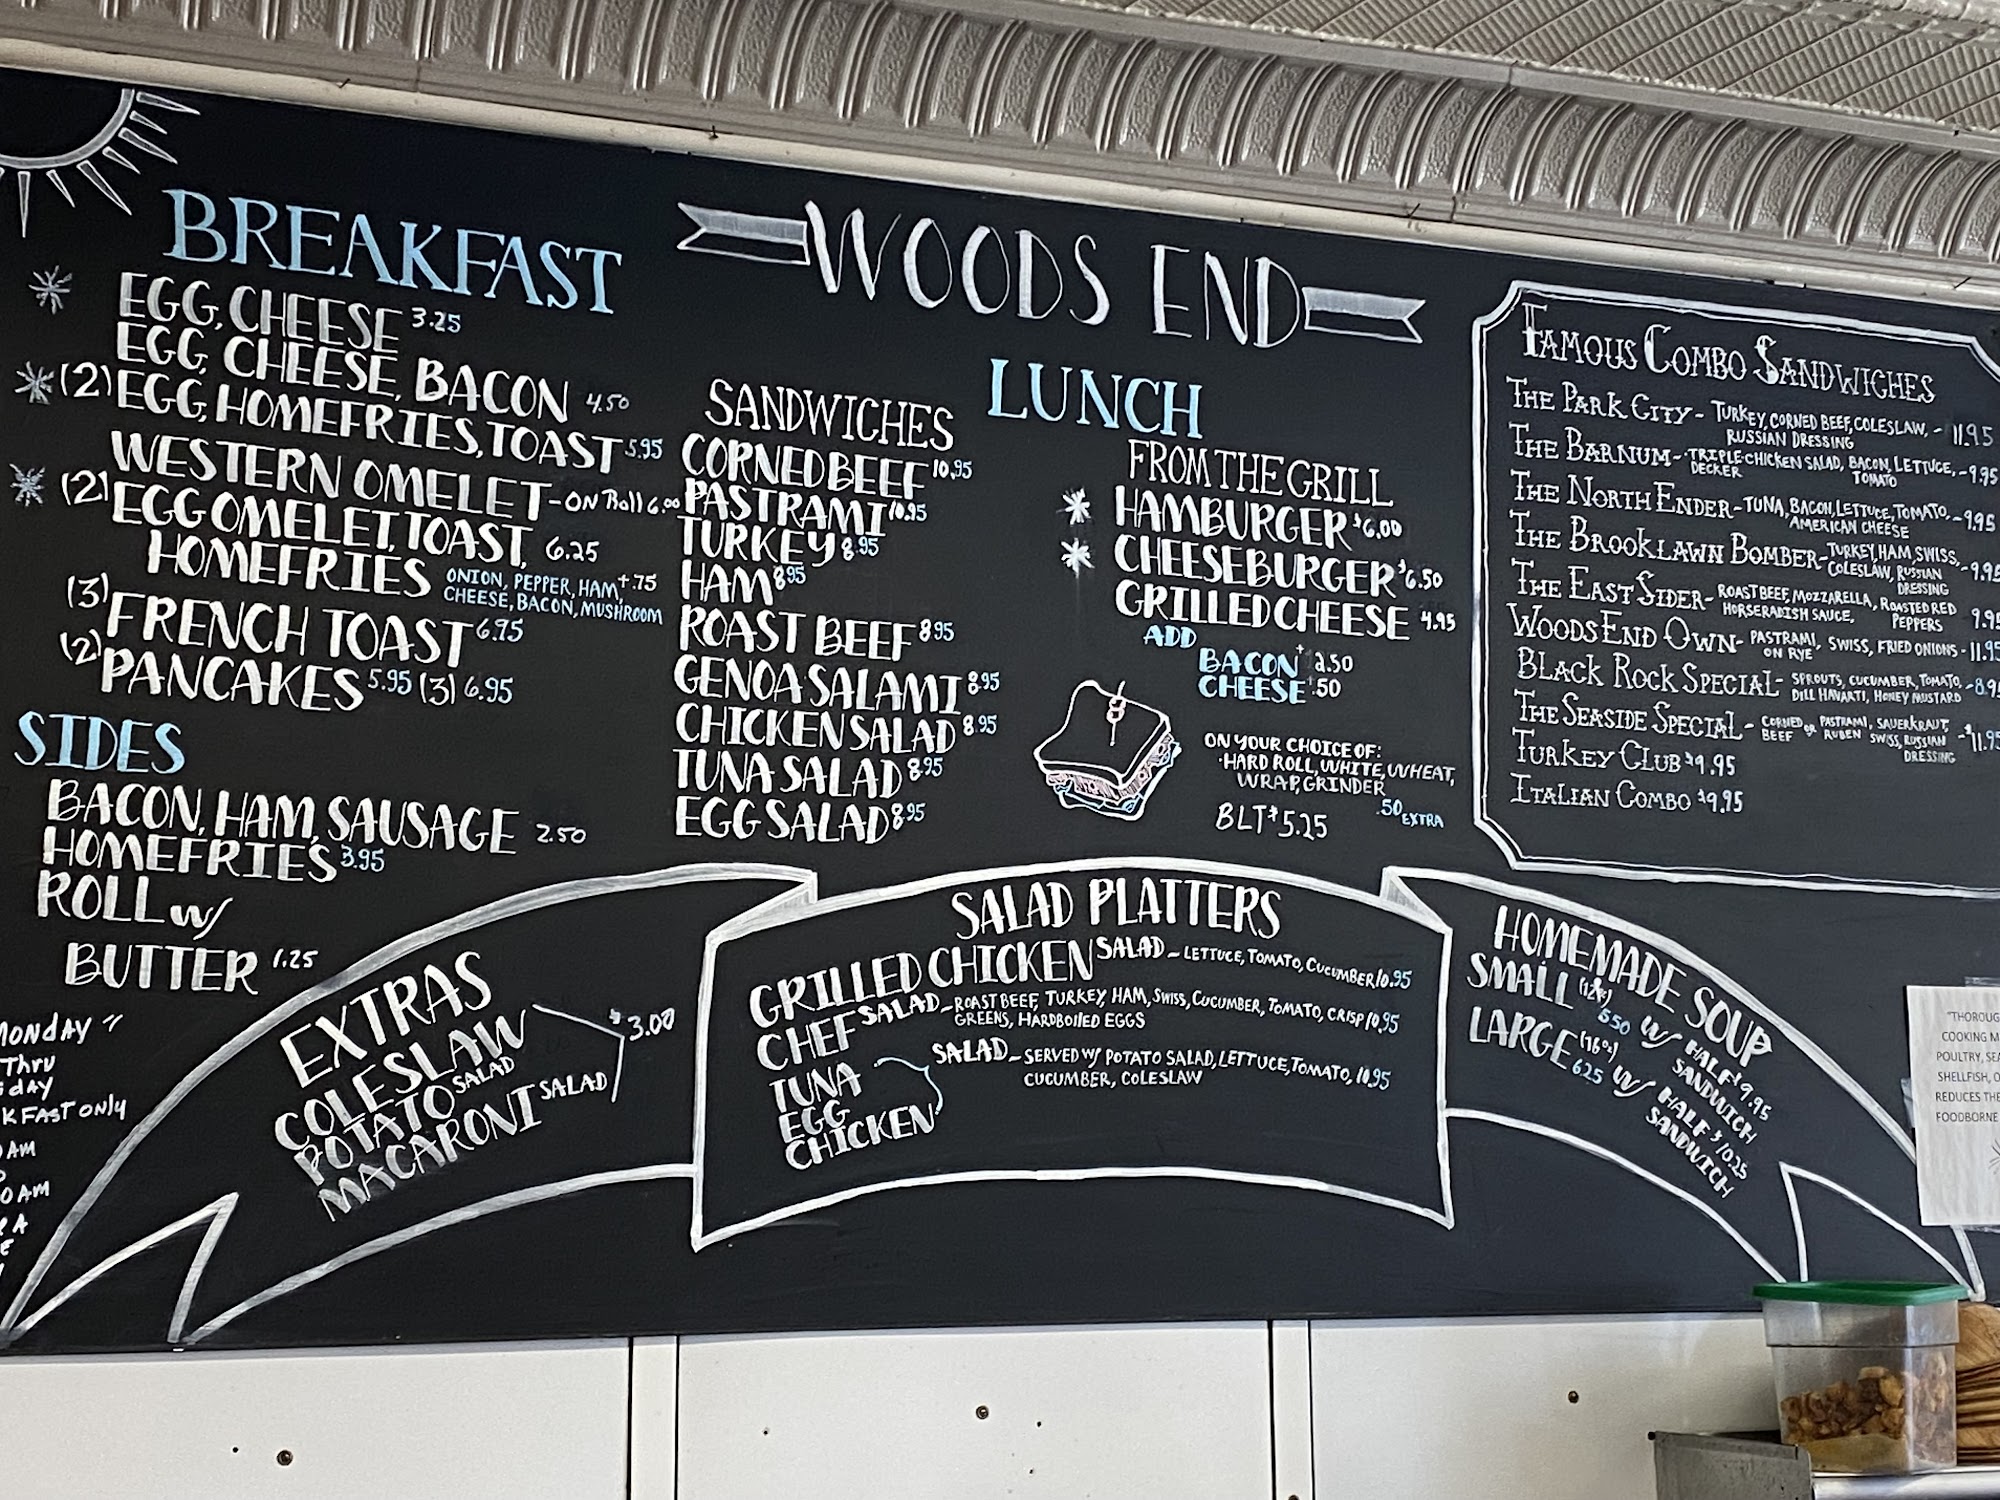 BREAKFAST
EGG, CHEESE 3.25
EGG, CHEESE, BACON 4.50
(2) EGG, HOMEFRIES, TOAST 5.95
WESTERN OMELET - ON Roll 6.00
(2) EGG OMELET, TOAST, 6.25
HOMEFRIES ONION, PEPPER, HAM, +.75
CHEESE, BACON, MUSHROOM
(3) FRENCH TOAST 6.95
(2) PANCAKES 5.95 (3) 6.95
SIDES
BACON, HAM, SAUSAGE 2.50
HOMEFRIES 3.95
ROLL W/
BUTTER 1.25
MONDAY "
Thru
KFAST ONLY
AM
AM
WOODS END
LUNCH
SANDWICHES
CORNED BEEF 10.95
PASTRAMI 10.95
TURKEY 8.95
HAM 8.95
ROAST BEEF 8.95
GENOA SALAMI 8.95
CHICKEN SALAD 8.95
TUNA SALAD 8.95
EGG SALAD 8.95
FROM THE GRILL
HAMBURGER $6.00
CHEESEBURGER $6.50
GRILLED CHEESE 4.95
ADD
BACON + 2.50
CHEESE + .50
ON YOUR CHOICE OF:
·HARD ROLL, WHITE, WHEAT,
WRAP, GRINDER
.50 EXTRA
BLT $5.25
FAMOUS COMBO SANDWICHES
THE PARK CITY - TURKEY, CORNED BEEF, COLESLAW, - 11.95
RUSSIAN DRESSING
THE BARNUM - TRIPLE- CHICKEN SALAD, BACON, LETTUCE, - 9.95
DECKER TOMATO
THE NORTH ENDER - TUNA, BACON, LETTUCE, TOMATO, - 9.95
AMERICAN CHEESE
THE BROOKLAWN BOMBER - TURKEY, HAM, SWISS, - 9.95
COLESLAW, RUSSIAN
DRESSING
THE EAST SIDER - ROAST BEEF, MOZZARELLA, ROASTED RED 9.95
HORSERADISH SAUCE, PEPPERS
WOODS END OWN - PASTRAMI, SWISS, FRIED ONIONS - 11.95
ON RYE
BLACK ROCK SPECIAL - SPROUTS, CUCUMBER, TOMATO, - 8.9
DILL HAVARTI, HONEY MUSTARD
THE SEASIDE SPECIAL - CORNED OR PASTRAMI, SAUERKRAUT, - $11.95
BEEF RUBEN SWISS, RUSSIAN
DRESSING
TURKEY CLUB $9.95
ITALIAN COMBO $9.95
EXTRAS
COLESLAW $3.00
POTATO SALAD
MACARONI SALAD
SALAD PLATTERS
GRILLED CHICKEN SALAD - LETTUCE, TOMATO, CUCUMBER 10.95
CHEF SALAD - ROAST BEEF, TURKEY, HAM, SWISS, CUCUMBER, TOMATO, CRISP 10.95
GREENS, HARDBOILED EGGS
TUNA
EGG
CHICKEN
SALAD - SERVED W/ POTATO SALAD, LETTUCE, TOMATO, 10.95
CUCUMBER, COLESLAW
HOMEMADE SOUP
SMALL (12oz) 5.50 W/ HALF $9.95
SANDWICH
LARGE (16oz) 6.25 W/ HALF $10.25
SANDWICH
"THOROUG
COOKING M
POULTRY, SEA
SHELLFISH, O
REDUCES THE
FOODBORNE